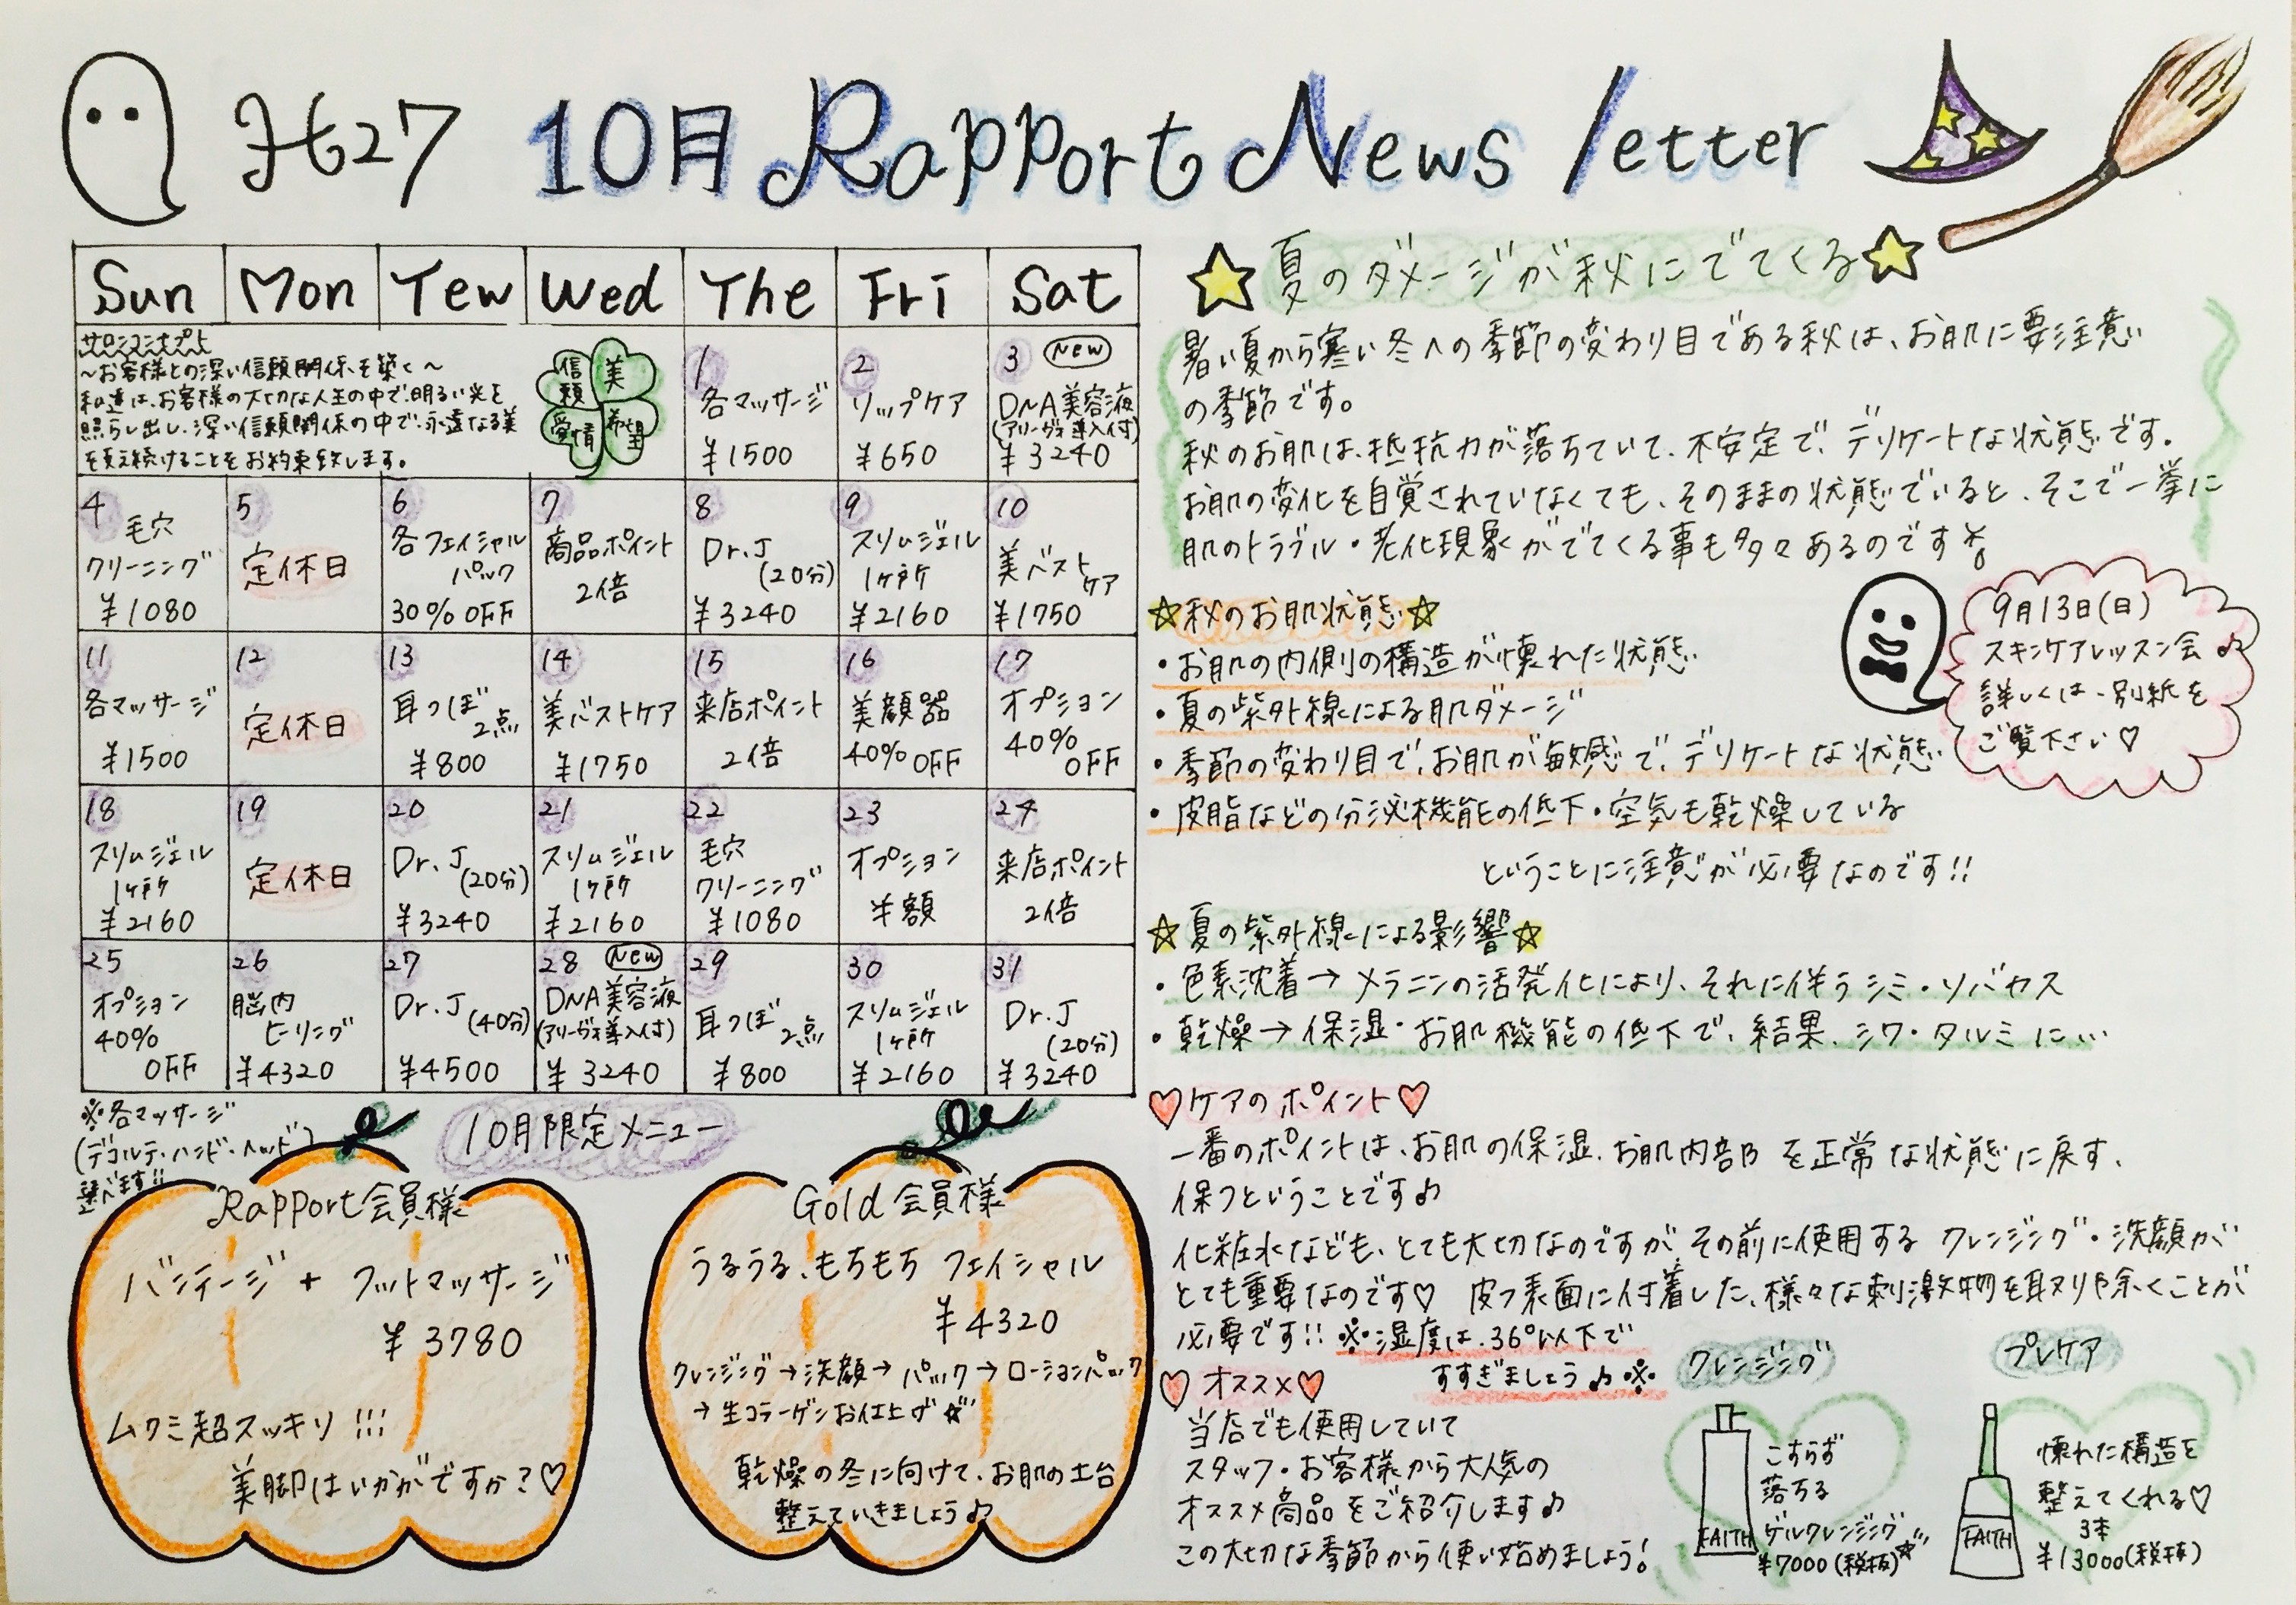 H27 10月 Rapport News letter
Sun Mon Tew Wed The Fri Sat
サロンコンセプト
〜お客様との深い信頼関係を築く〜
私達は、お客様の大切な人生の中で、明るい光を
照らし出し、深い信頼関係の中で、永遠なる美
を支え続けることをお約束致します。
信頼 美
愛情 希望
1
各マッサージ
¥1500
2
リップケア
¥650
3 New
DNA美容液
(アリーヴォ導入付)
¥3240
4
毛穴
クリーニング
¥1080
5
定休日
6
各フェイシャル
パック
30%OFF
7
商品ポイント
2倍
8
Dr.J
(20分)
¥3240
9
スリムジェル
1ヶ所
¥2160
10
美バスト
ケア
¥1750
11
各マッサージ
¥1500
12
定休日
13
耳つぼ
2点
¥800
14
美バストケア
¥1750
15
来店ポイント
2倍
16
美顔器
40%OFF
17
オプション
40%
OFF
18
スリムジェル
1ヶ所
¥2160
19
定休日
20
Dr.J
(20分)
¥3240
21
スリムジェル
1ヶ所
¥2160
22
毛穴
クリーニング
¥1080
23
オプション
半額
24
来店ポイント
2倍
25
オプション
40%
OFF
26
脳内
ヒーリング
¥4320
27
Dr.J
(40分)
¥4500
28 New
DNA美容液
(アリーヴォ導入付)
¥3240
29
耳つぼ
2点
¥800
30
スリムジェル
1ヶ所
¥2160
31
Dr.J
(20分)
¥3240
※各マッサージ
(デコルテ・ハンド・ヘッド)
選べます!!
10月限定メニュー
Rapport会員様
バンテージ + フットマッサージ
¥3780
ムクミ超スッキリ!!!
美脚はいかがですか?♡
Gold会員様
うるうる、もちもち フェイシャル
¥4320
クレンジング→洗顔→パック→ローションパック
→生コラーゲンお仕上げ☆
乾燥の冬に向けて、お肌の土台
整えていきましょう♪
☆夏のダメージが秋にでてくる☆
暑い夏から寒い冬への季節の変わり目である秋は、お肌に要注意
の季節です。
秋のお肌は、抵抗力が落ちていて、不安定で、デリケートな状態です。
お肌の変化を自覚されていなくても、そのままの状態でいると、そこで一挙に
肌のトラブル・老化現象がでてくる事も多々あるのです
☆秋のお肌状態☆
・お肌の内側の構造が壊れた状態
・夏の紫外線による肌ダメージ
・季節の変わり目で、お肌が敏感で、デリケートな状態
・皮脂などの分泌機能の低下・空気も乾燥している
ということに注意が必要なのです!!
9月13日(日)
スキンケアレッスン会♪
詳しくは、別紙を
ご覧下さい♡
☆夏の紫外線による影響☆
・色素沈着→メラニンの活発化により、それに伴うシミ・ソバカス
・乾燥→保湿・お肌機能の低下で、結果、シワ・タルミに…
♡ケアのポイント♡
一番のポイントは、お肌の保湿、お肌内部を正常な状態に戻す、
保つということです♪
化粧水なども、とても大切なのですが、その前に使用する クレンジング・洗顔が
とても重要なのです♡ 皮フ表面に付着した、様々な刺激物を取り除くことが
必要です!! ※湿度は、36°以下で
すすぎましょう♪※
♡オススメ♡
当店でも使用していて
スタッフ・お客様から大人気の
オススメ商品をご紹介します♪
この大切な季節から使い始めましょう!
クレンジング
こすらず
落ちる
ゲルクレンジング☆
¥7000(税抜)
FAITH
プレケア
壊れた構造を
整えてくれる♡
3本
¥13000(税抜)
FAITH